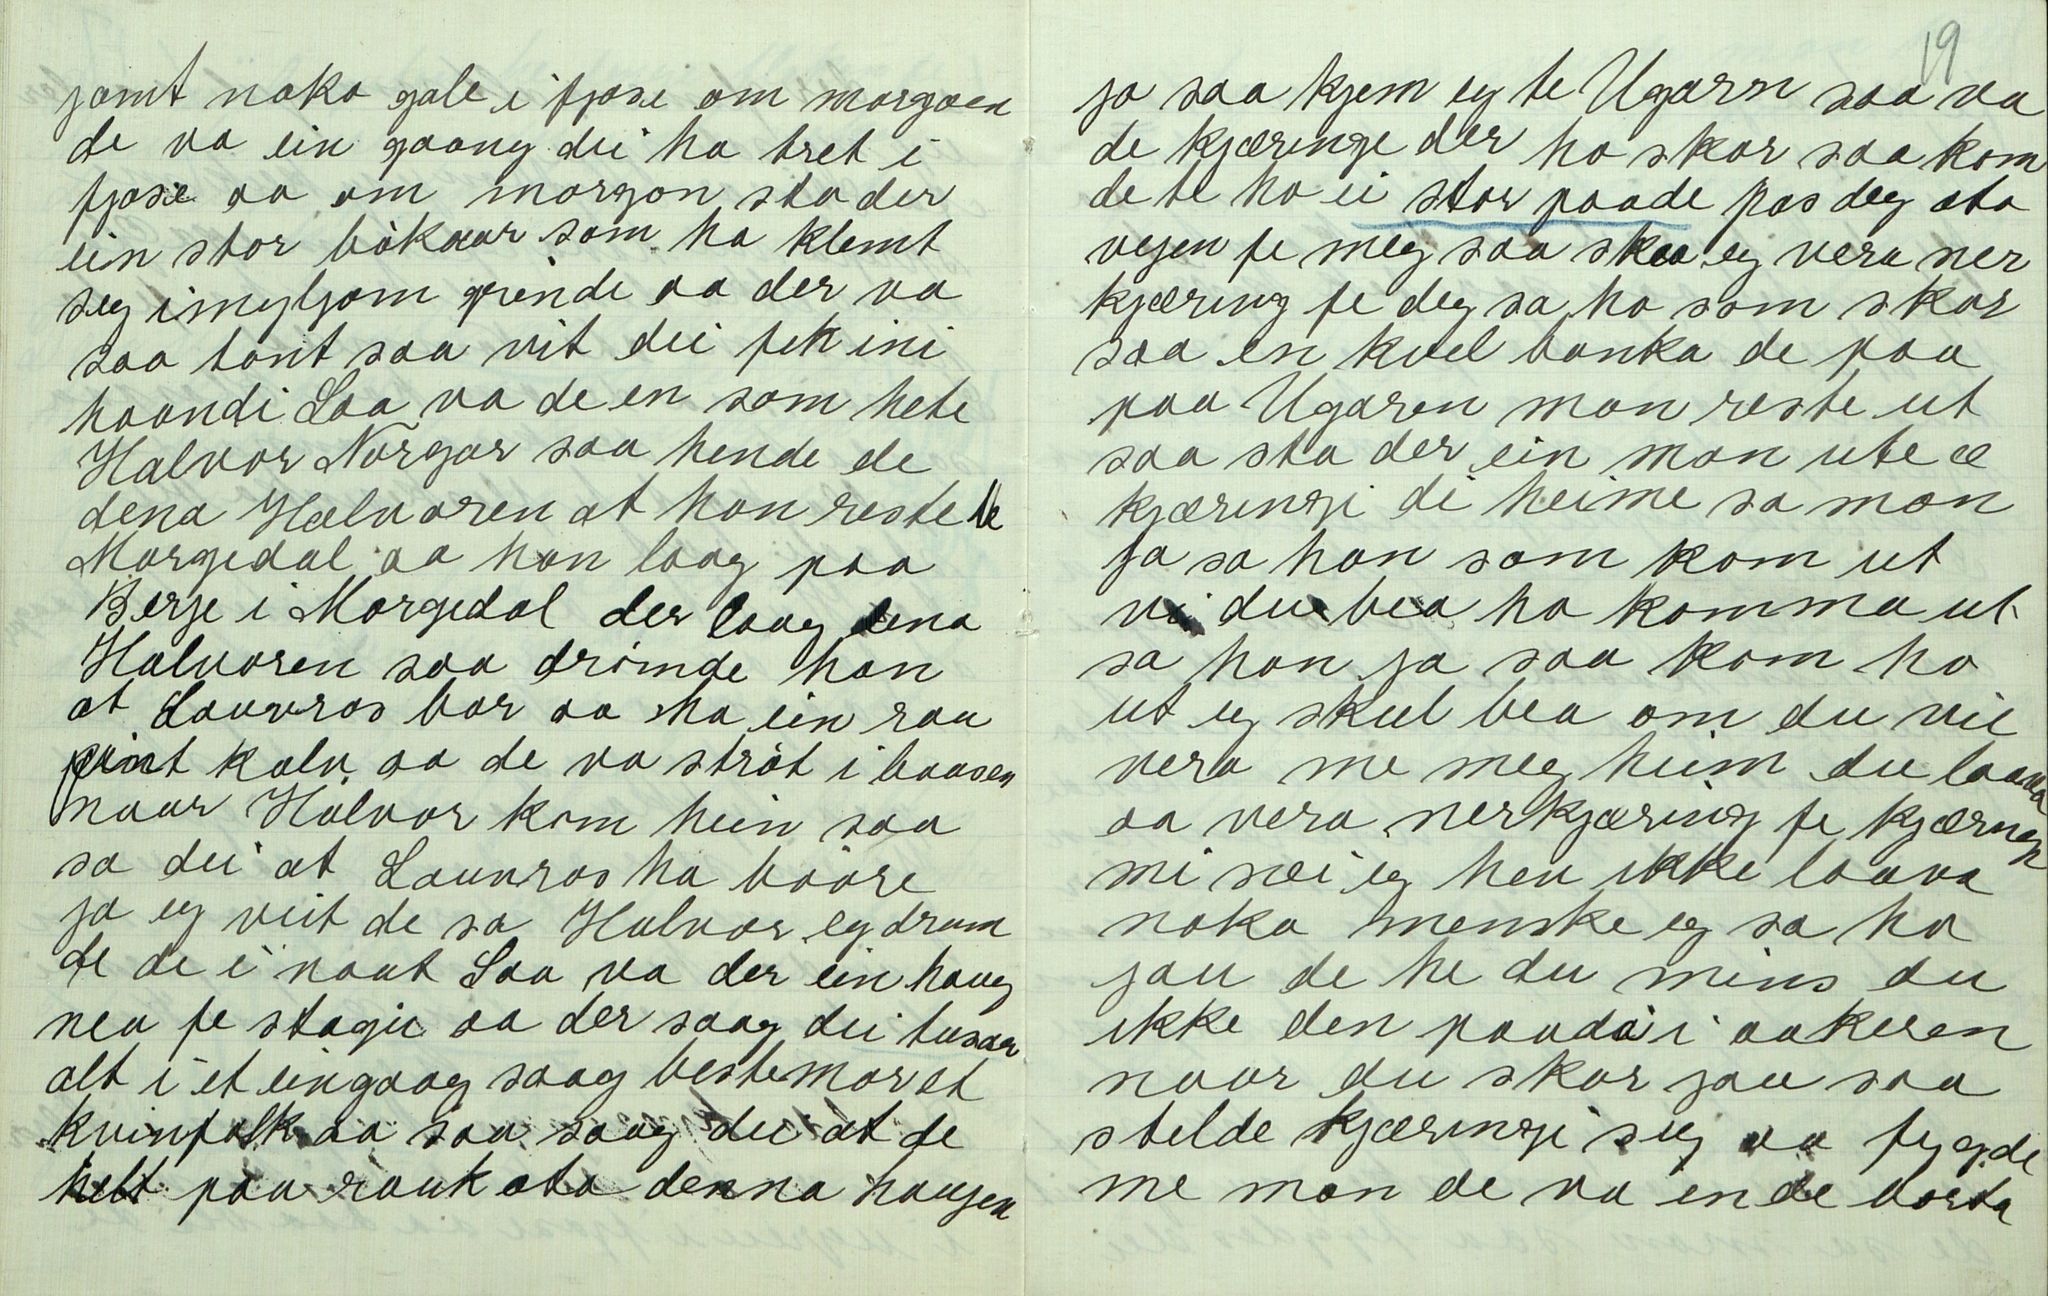 jamt noko gale i fjose om morgoen
de va ein gaang dei ha tret i
fjose aa om morgon sto der
ein stor bòkaar som ha klemt
seg imyljom grinde aa der va
saa tont saa vit dei fek ini
haandi Saa va de en som hete
Halvor Norgar saa hende de
dena Halvoren at han reste te
Morgedal aa han laag paa
Berje i Morgedal der laag dena
Halvoren saa drimde han
at Lauvros bar aa ha ein rau
pint kalv aa de va stròt i baasen
naar Halvor kom hein saa
sa dei at Lauvros ha bòre
ja eg veit de sa Halvor eg drøm
de de i naat Saa va der ein haug
nea fe stogu aa der saag dei tusaar
alt i et ein gaag saag bestemor et
kvinfolk aa saa saag dei at de
helt paa rauk ata denna haugen
19
ja saa kjem eg te Ugarn saa va
de kjæringe der ho skar saa kom
de te ho ei stor paade pas deg ata
vejen fe meg saa skaa eg vera ner
kjæring fe deg sa ho som skar
saa en kvel banka de paa
paa Ugaren man reste ut
saa sto der ein man ute æ
kjæringi di heime sa man
ja sa han som kom ut
vi du bea ho komma ut
sa han ja saa kom ho
ut eg skul bea om du vil
vera me meg heim du laava
aa vera nerkjæring fe kjærnga
mi nei eg hev ikke laava
noka menske eg sa ho
jau de he du mins du
ikke den paada i aakeren
naar du skar jau saa
stelde kjæringi seg aa fygde
me man de va en de borta